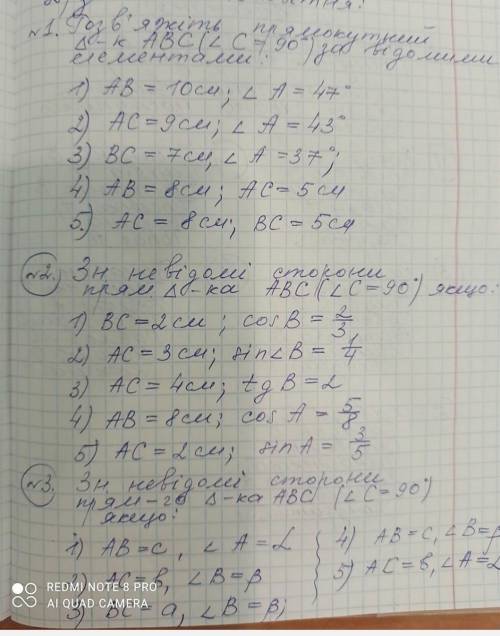 №1. Розв'яжіть прямокутний
Δ-к ABC (∠C = 90°) за відомими
елементами:
1) AB = 10см; ∠A = 47°
2) AC = 9см; ∠A = 43°
3) BC = 7см, ∠A = 37°;
4) AB = 8см; AC = 5см
5) AC = 8см; BC = 5см
№2. Зн невідомі сторони
прям. Δ-ка ABC (∠C = 90°) якщо:
1) BC = 2см; cosB = 2/3
2) AC = 3см; sin∠B = 1/4
3) AC = 4см; tgB = 2
4) AB = 8см; cosA = 5/8
5) AC = 2см; sinA = 3/5
№3. Зн невідомі сторони
прям-го Δ-ка ABC (∠C = 90°)
якщо:
1) AB = c, ∠A = α
2) AC = b, ∠B = β
3) BC = a, ∠B = β;
4) AB = c, ∠B = β
5) AC = b, ∠A = α
REDMI NOTE 8 PRO
AI QUAD CAMERA